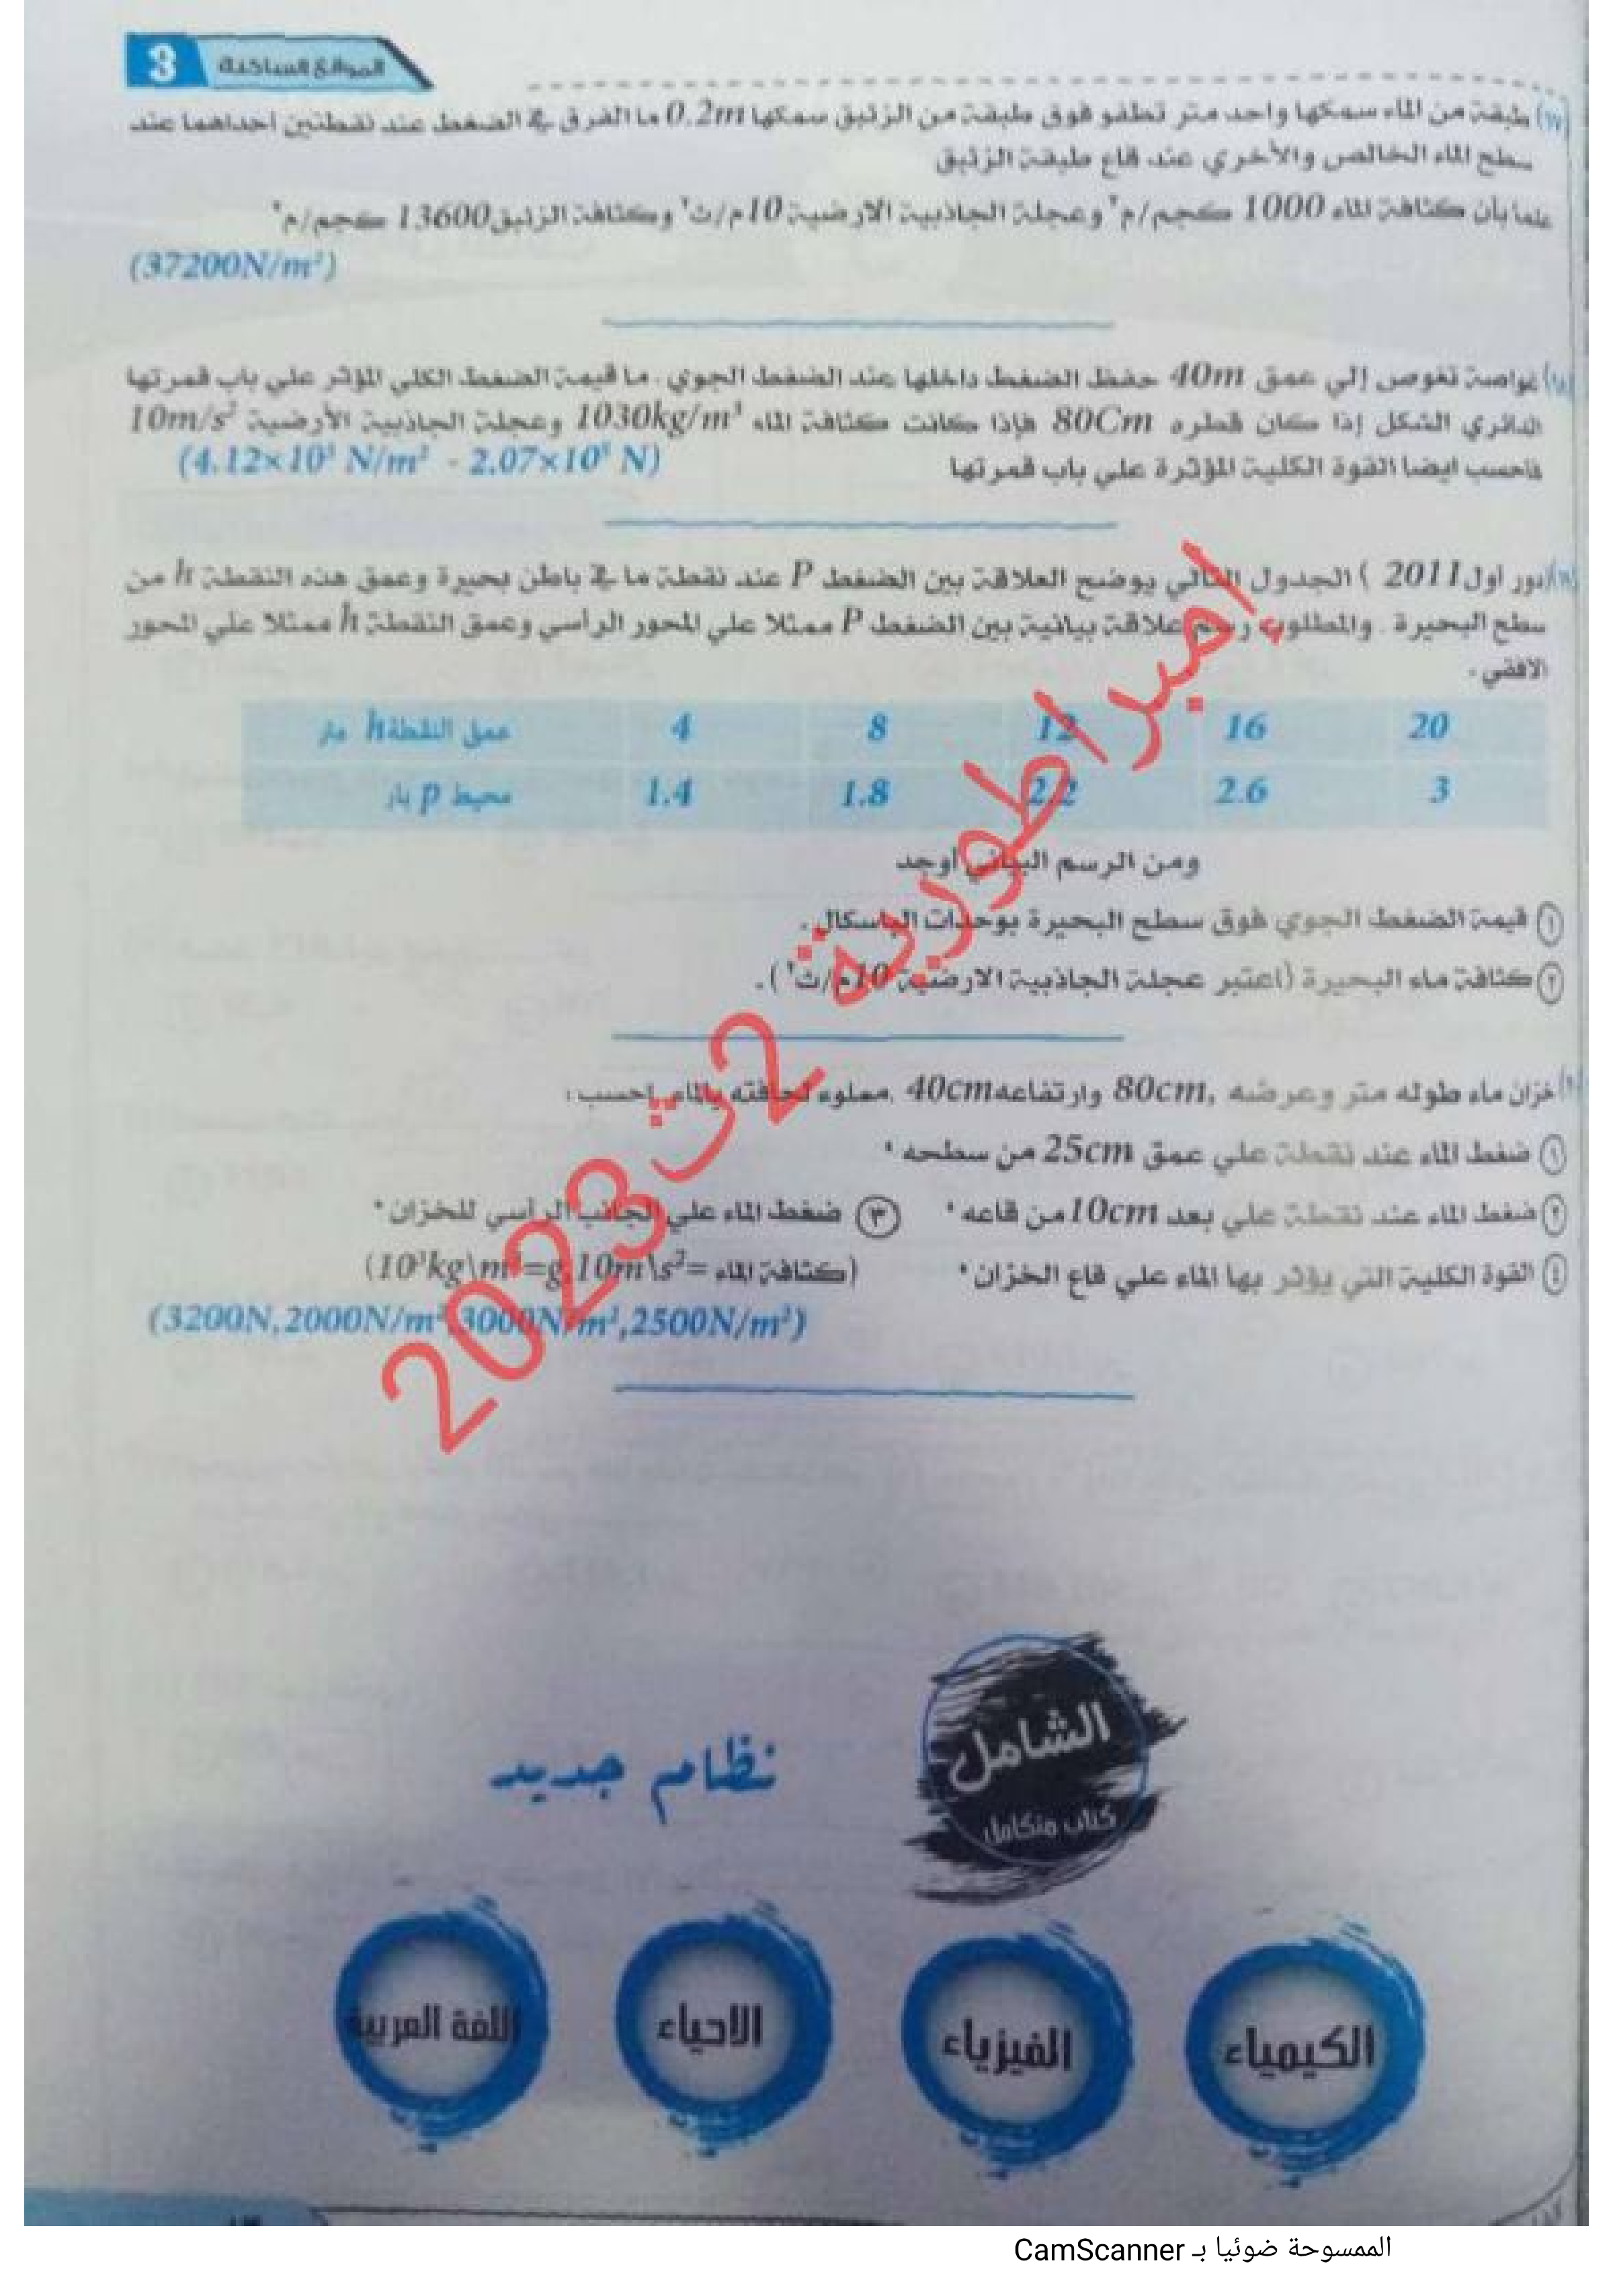 الموائع الساكنة 3
(١٧) طبقة من الماء سمكها واحد متر تطفو فوق طبقة من الزئبق سمكها 0.2m ما الفرق في الضغط عند نقطتين احداهما عند
سطح الماء الخالص والأخري عند قاع طبقة الزئبق
علما بأن كثافة الماء 1000 كجم/م٣ وعجلة الجاذبية الارضية 10م/ث٢ وكثافة الزئبق 13600 كجم/م٣
(37200N/m²)
(١٨) غواصة تغوص إلي عمق 40m حفظ الضغط داخلها عند الضغط الجوي. ما قيمة الضغط الكلي المؤثر علي باب قمرتها
الدائري الشكل إذا كان قطره 80Cm فإذا كانت كثافة الماء 1030kg/m³ وعجلة الجاذبية الأرضية 10m/s²
فاحسب ايضا القوة الكلية المؤثرة علي باب قمرتها (4.12×10⁵ N/m² - 2.07×10⁵ N)
(دور أول 2011) الجدول التالي يوضح العلاقة بين الضغط P عند نقطة ما في باطن بحيرة وعمق هذه النقطة h من
سطح البحيرة. والمطلوب رسم علاقة بيانية بين الضغط P ممثلا علي المحور الرأسي وعمق النقطة h ممثلا علي المحور
الافقي.
عمق النقطة h متر 4 8 12 16 20
محيط p بار 1.4 1.8 2.2 2.6 3
ومن الرسم البياني أوجد
١ قيمة الضغط الجوي فوق سطح البحيرة بوحدات الباسكال.
٢ كثافة ماء البحيرة (اعتبر عجلة الجاذبية الارضية 10م/ث٢).
خزان ماء طوله متر وعرضه 80cm, وارتفاعه 40cm, مملوء لحافته بالماء إحسب:
١ ضغط الماء عند نقطة علي عمق 25cm من سطحه
٢ ضغط الماء عند نقطة علي بعد 10cm من قاعه ٣ ضغط الماء علي الجانب الرأسي للخزان
٤ القوة الكلية التي يؤثر بها الماء علي قاع الخزان (كثافة الماء =10³kg\m³=g,10m\s²)
(3200N,2000N/m²,3000N/m²,2500N/m²)
إمبراطورية 2ث 2023
الشامل
كتاب متكامل
نظام جديد
الكيمياء
الفيزياء
الاحياء
اللغة العربية
الممسوحة ضوئيا بـ CamScanner